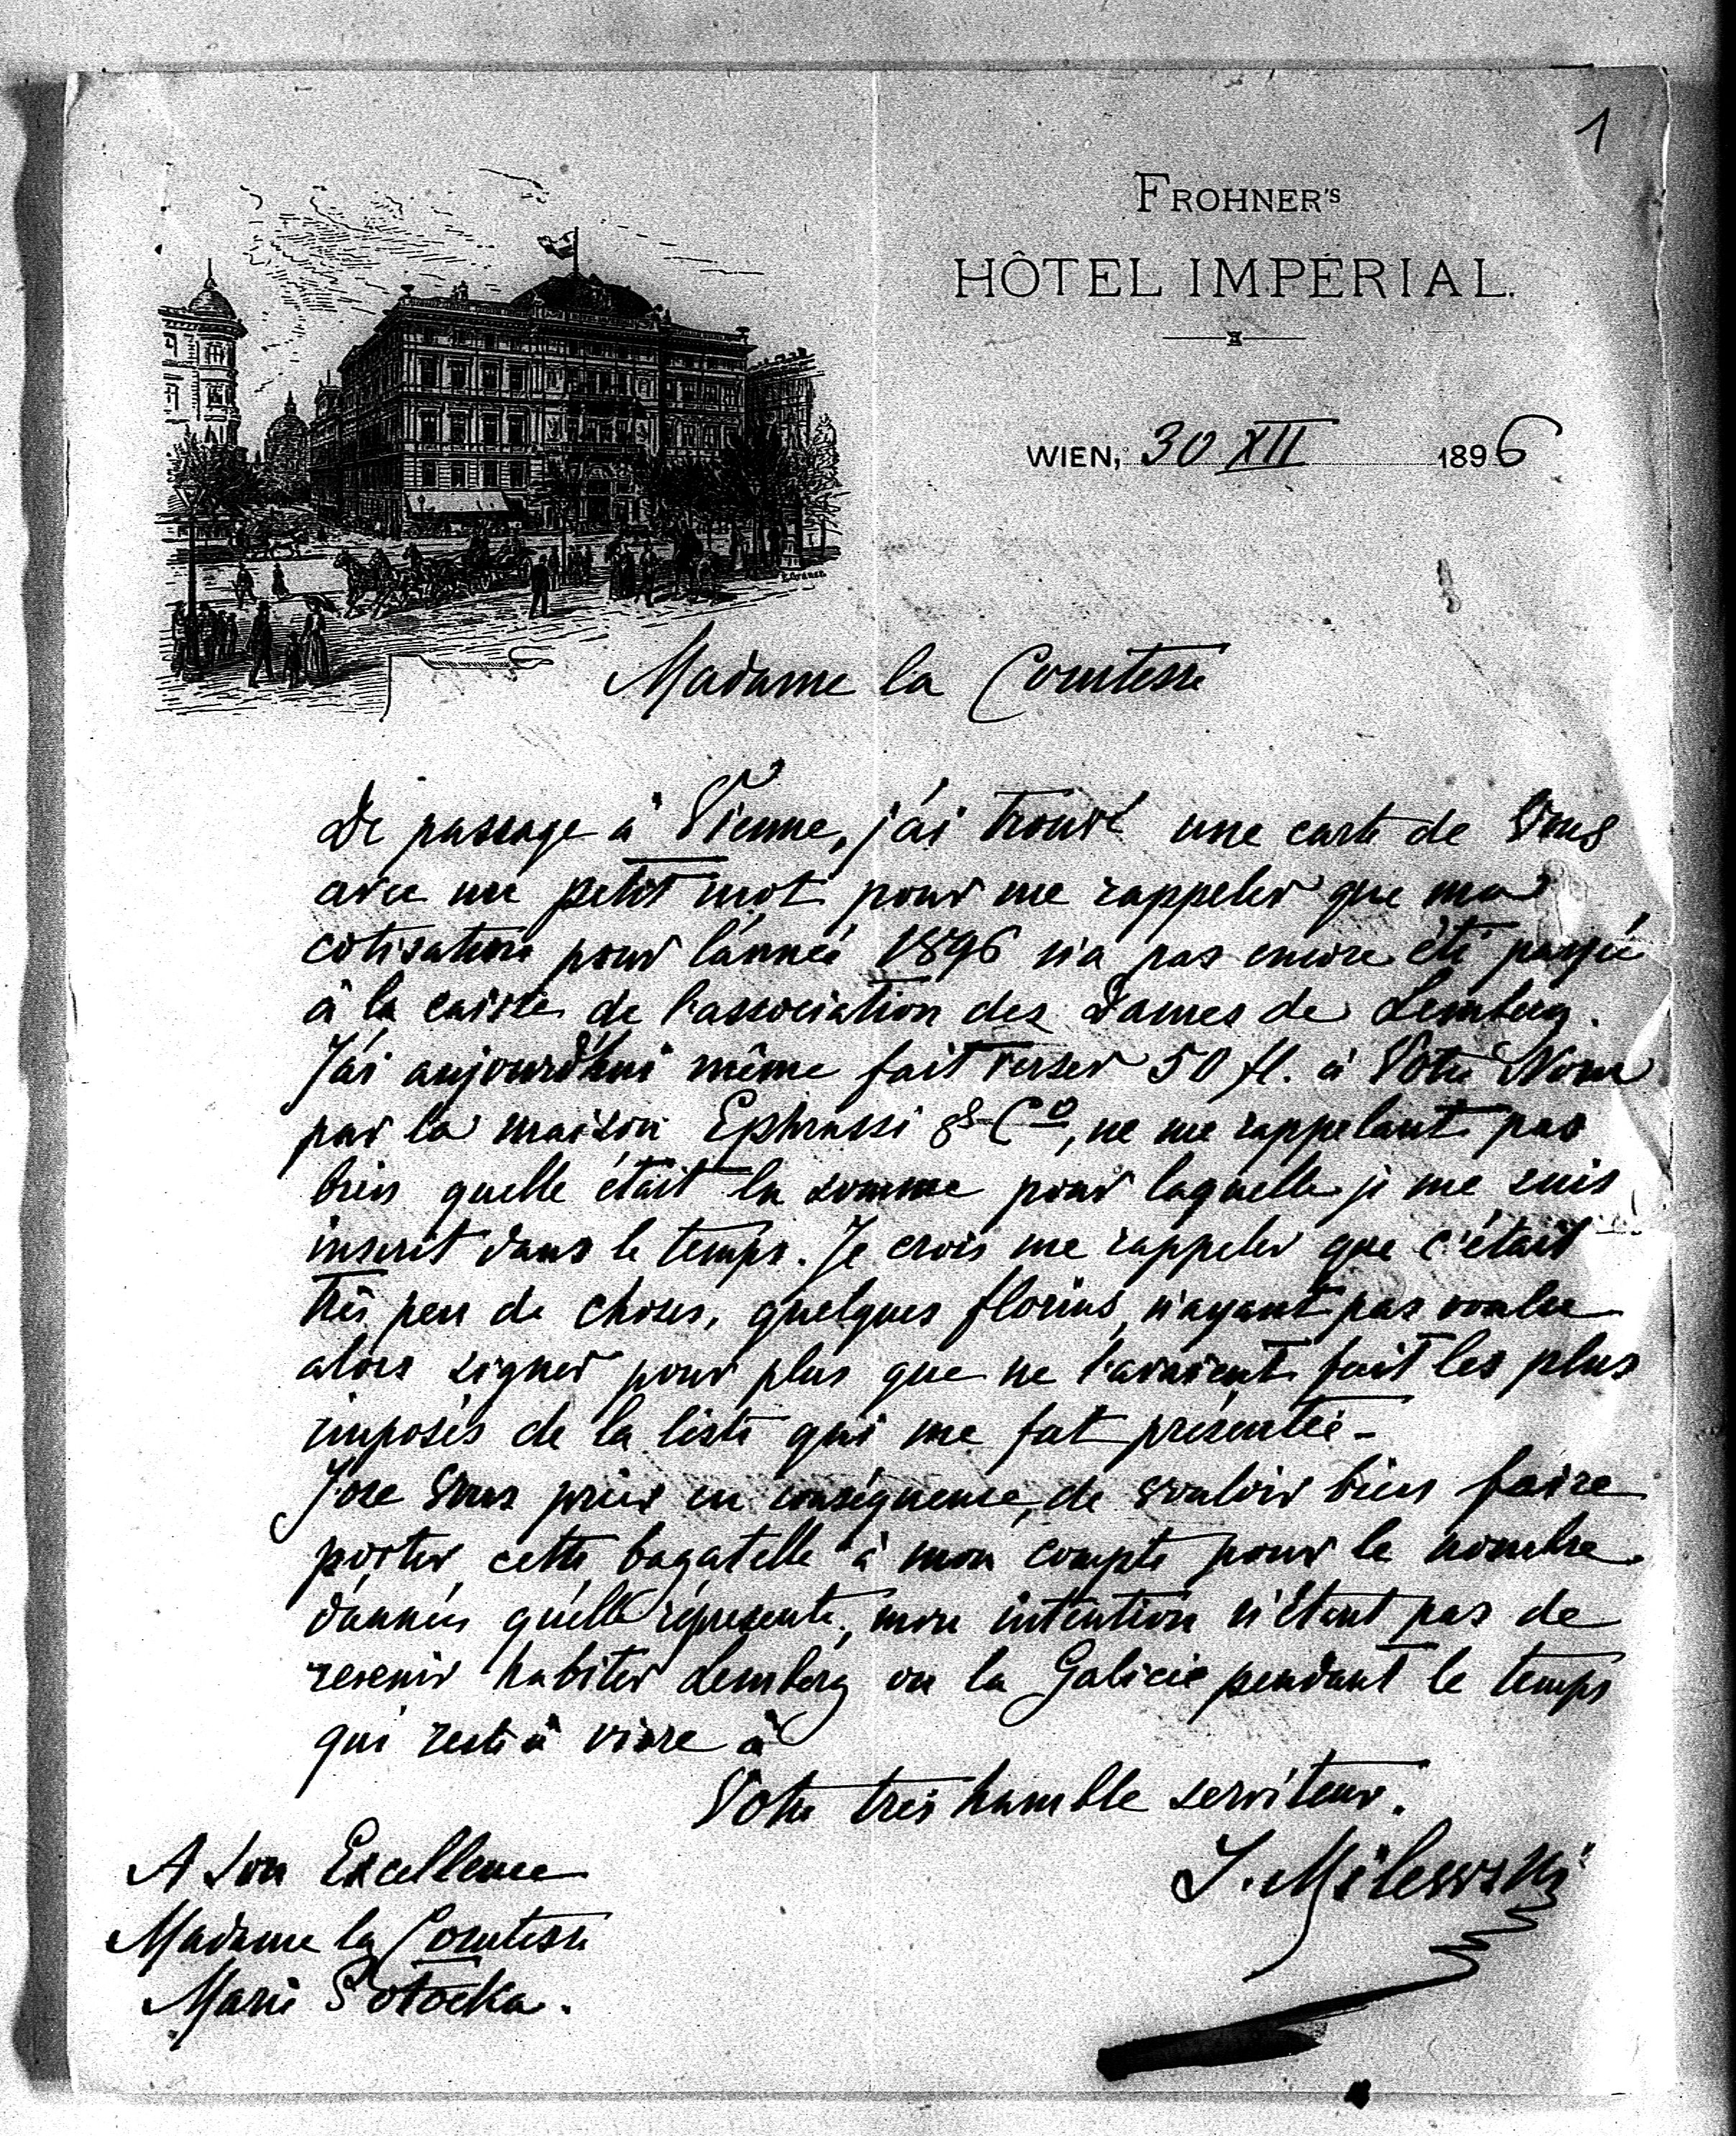 1
FROHNER'S
HÔTEL IMPÉRIAL.
WIEN, 30 XII 1896
Madame la Comtesse
De passage à Vienne, j'ai trouvé une carte de Vous
avec un petit mot pour me rappeler que ma
cotisation pour l'année 1896 n'a pas encore été payée
à la caisse de l'association des Dames de Lemberg.
J'ai aujourd'hui même fait verser 50 fl. à Votre Nom
par la maison Ephrussi & Co, ne me rappelant pas
bien quelle était la somme pour laquelle je me suis
inscrit dans le temps. Je crois me rappeler que c'était
très peu de choses, quelques florins, n'ayant pas voulu
alors signer pour plus que ne l'avaient fait les plus
imposés de la liste qui me fut présentée -
J'ose Vous prier en conséquence, de vouloir bien faire
porter cette bagatelle à mon compte pour le nombre
d'années qu'elle représente, mon intention n'étant pas de
revenir habiter Lemberg ou la Galicie pendant le temps
qui reste à vivre à
Votre très humble serviteur.
J. Milewski
A Son Excellence
Madame la Comtesse
Marie Potocka.